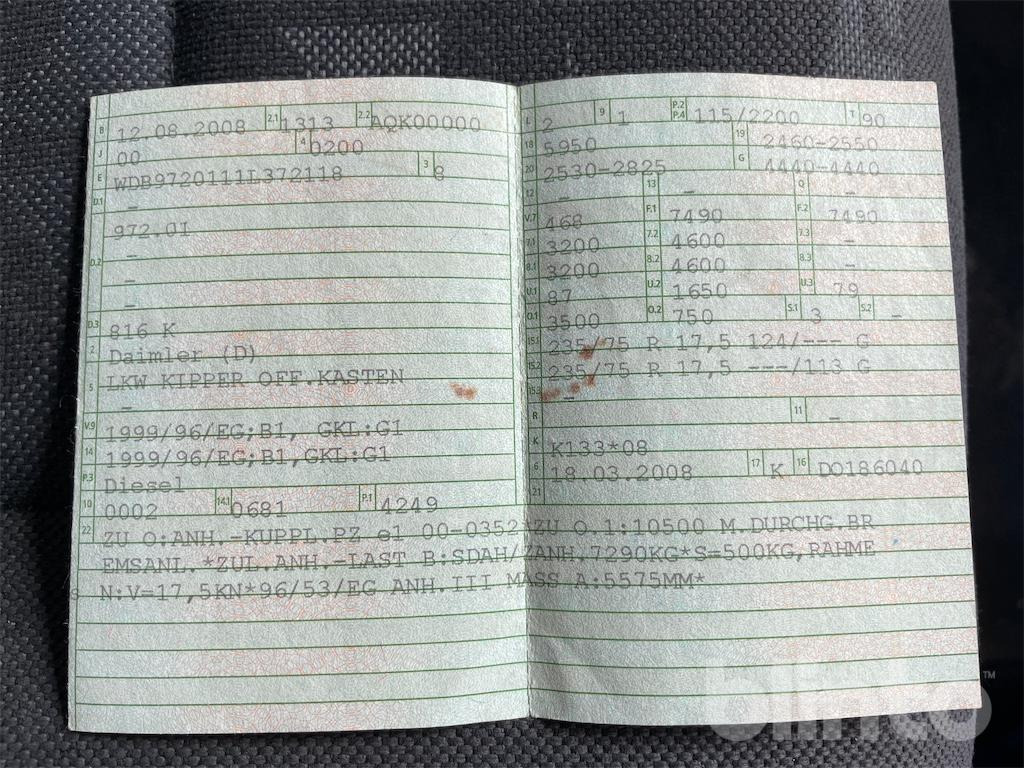 B 12.08.2008 2.1 1313 2.2 AQK00000
J 00 4 0200
E WDB9720111L372118 3 8
D.1 –
972.0I
D.2 –
–
–
D.3 816 K
2 Daimler (D)
5 LKW KIPPER OFF.KASTEN
–
V.9 1999/96/EG;B1, GKL:G1
14 1999/96/EG;B1,GKL:G1
P.3 Diesel
10 0002 14.1 0681 P.1 4249
L 2 9 1 P.2 P.4 115/2200 T 90
18 5950 19 2460-2550
20 2530-2825 G 4440-4440
12 – 13 – Q –
V.7 468 F.1 7490 F.2 7490
7.1 3200 7.2 4600 7.3 –
8.1 3200 8.2 4600 8.3 –
U.1 87 U.2 1650 U.3 79
O.1 3500 O.2 750 S.1 3 S.2 –
15.1 235/75 R 17,5 124/--- G
15.2 235/75 R 17,5 ---/113 G
15.3 –
R 11 –
K K133*08
6 18.03.2008 17 K 16 DO186040
21
22 ZU O:ANH.-KUPPL.PZ e1 00-0352*ZU O.1:10500 M.DURCHG.BR
EMSANL.*ZUL.ANH.-LAST B:SDAH/ZANH.7290KG*S=500KG,RAHME
N:V=17,5KN*96/53/EG ANH.III MASS A:5575MM*
blinto™